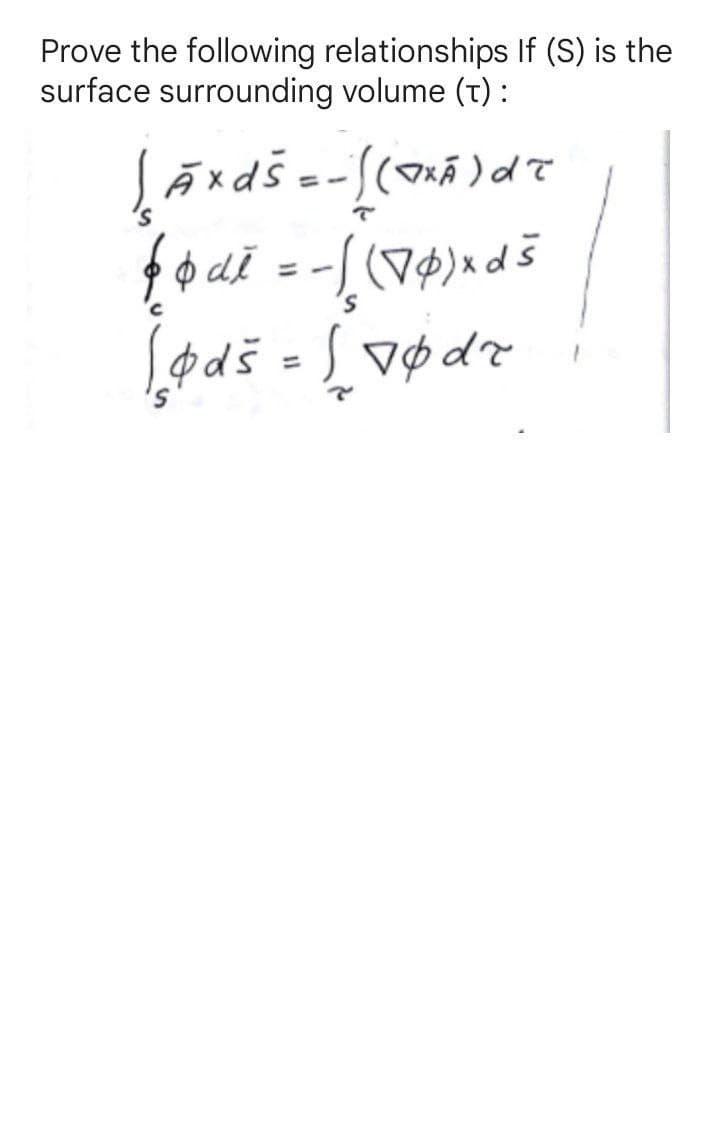 Prove the following relationships If (S) is the
surface surrounding volume (τ) :
∫_S Ā × d s̄ = - ∫_τ (∇×Ā) dτ
∮_C φ d l̄ = - ∫_S (∇φ) × d s̄
∫_S φ d s̄ = ∫_τ ∇φ dτ